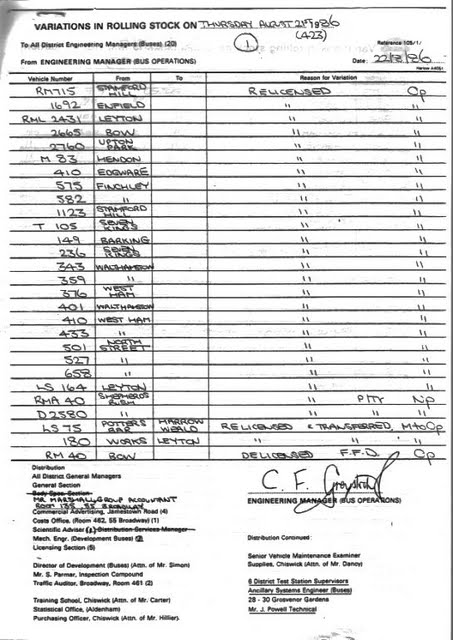 VARIATIONS IN ROLLING STOCK ON THURSDAY AUGUST 21ST 1986
(423)
To All District Engineering Managers (Buses) (20) 1 Reference: 105/1/
From ENGINEERING MANAGER (BUS OPERATIONS) Date: 22/8/86
Vehicle Number From To Reason for Variation
RM715 STAMFORD HILL RELICENSED Op
1692 ENFIELD " "
RML 2431 LEYTON " "
2665 BOW " "
2760 UPTON PARK " "
M 83 HENDON " "
410 EDGWARE " "
575 FINCHLEY " "
582 " " "
1123 STAMFORD HILL " "
T 105 SEVEN KINGS " "
149 BARKING " "
236 SEVEN KINGS " "
343 WALTHAMSTOW " "
359 " " "
376 WEST HAM " "
401 WALTHAMSTOW " "
410 WEST HAM " "
433 " " "
501 NORTH STREET " "
527 " " "
658 " " "
LS 164 LEYTON " "
RMA 40 SHEPHERDS BUSH " PTTY Np
D2580 " " " "
LS 75 POTTERS BAR HARROW WEALD RELICENSED & TRANSFERRED, M to Op
180 WORKS LEYTON " " "
RM 40 BOW DELICENSED F.F.D. Op
Distribution
All District General Managers
General Section
Body Spec. Section
MR MARSHALL, GROUP ACCOUNTANT
ROOM 135, 55 BROADWAY
Commercial Advertising, Jamestown Road (4)
Costs Office, (Room 462, 55 Broadway) (1)
Scientific Adviser (1) Distribution Services Manager
Mech. Engr. (Development Buses)
Licensing Section (5)
Director of Development (Buses) (Attn. of Mr. Simon)
Mr. S. Parmar, Inspection Compound
Traffic Auditor, Broadway, Room 461 (2)
Training School, Chiswick (Attn. of Mr. Carter)
Statistical Office, (Aldenham)
Purchasing Officer, Chiswick (Attn. of Mr. Hillier).
C. F.
ENGINEERING MANAGER (BUS OPERATIONS)
Distribution Continued:
Senior Vehicle Maintenance Examiner
Supplies, Chiswick (Attn. of Mr. Dancy)
6 District Test Station Supervisors
Ancillary Systems Engineer (Buses)
28 - 30 Grosvenor Gardens
Mr. J. Powell Technical